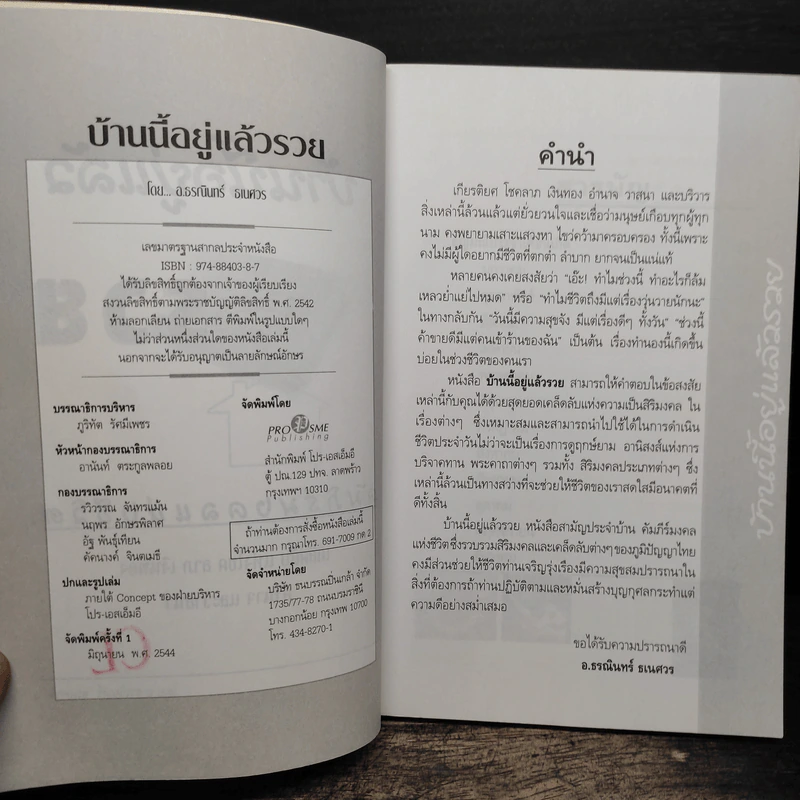 บ้านนี้อยู่แล้วรวย
โดย... อ.ธรณินทร์ ธเนศวร
เลขมาตรฐานสากลประจำหนังสือ
ISBN : 974-88403-8-7
ได้รับลิขสิทธิ์ถูกต้องจากเจ้าของผู้เรียบเรียง
สงวนลิขสิทธิ์ตามพระราชบัญญัติลิขสิทธิ์ พ.ศ. 2542
ห้ามลอกเลียน ถ่ายเอกสาร ตีพิมพ์ในรูปแบบใดๆ
ไม่ว่าส่วนหนึ่งส่วนใดของหนังสือเล่มนี้
นอกจากจะได้รับอนุญาตเป็นลายลักษณ์อักษร
บรรณาธิการบริหาร
ภูริทัต รัศมีเพชร
หัวหน้ากองบรรณาธิการ
อานันท์ ตระกูลพลอย
กองบรรณาธิการ
รวิวรรณ จันทรแม้น
นฤพร อักษรพิลาศ
อัฐ พันธุ์เทียน
คัคนางค์ จินตเมธี
ปกและรูปเล่ม
ภายใต้ Concept ของฝ่ายบริหาร
โปร-เอสเอ็มอี
จัดพิมพ์ครั้งที่ 1
มิถุนายน พ.ศ. 2544
จัดพิมพ์โดย
PRO SME
Publishing
สำนักพิมพ์ โปร-เอสเอ็มอี
ตู้ ปณ.129 ปทจ. ลาดพร้าว
กรุงเทพฯ 10310
ถ้าท่านต้องการสั่งซื้อหนังสือเล่มนี้
จำนวนมาก กรุณาโทร. 691-7009 กด 2
จัดจำหน่ายโดย
บริษัท ธนบรรณปิ่นเกล้า จำกัด
1735/77-78 ถนนบรมราชชนนี
บางกอกน้อย กรุงเทพฯ 10700
โทร. 434-8270-1
คำนำ
เกียรติยศ โชคลาภ เงินทอง อำนาจ วาสนา และบริวาร
สิ่งเหล่านี้ล้วนแล้วแต่ยั่วยวนใจและเชื่อว่ามนุษย์เกือบทุกผู้ทุก
นาม คงพยายามเสาะแสวงหา ไขว่คว้ามาครอบครอง ทั้งนี้เพราะ
คงไม่มีผู้ใดอยากมีชีวิตที่ตกต่ำ ลำบาก ยากจนเป็นแน่แท้
หลายคนคงเคยสงสัยว่า “เอ๊ะ! ทำไมช่วงนี้ ทำอะไรก็ล้ม
เหลวย่ำแย่ไปหมด” หรือ “ทำไมชีวิตถึงมีแต่เรื่องวุ่นวายนักนะ”
ในทางกลับกัน “วันนี้มีความสุขจัง มีแต่เรื่องดีๆ ทั้งวัน” “ช่วงนี้
ค้าขายดีมีแต่คนเข้าร้านของฉัน” เป็นต้น เรื่องทำนองนี้เกิดขึ้น
บ่อยในช่วงชีวิตของคนเรา
หนังสือ บ้านนี้อยู่แล้วรวย สามารถให้คำตอบในข้อสงสัย
เหล่านี้กับคุณได้ด้วยสุดยอดเคล็ดลับแห่งความเป็นสิริมงคล ใน
เรื่องต่างๆ ซึ่งเหมาะสมและสามารถนำไปใช้ได้ในการดำเนิน
ชีวิตประจำวันไม่ว่าจะเป็นเรื่องการดูฤกษ์ยาม อานิสงส์แห่งการ
บริจาคทาน พระคาถาต่างๆ รวมทั้ง สิริมงคลประเภทต่างๆ ซึ่ง
เหล่านี้ล้วนเป็นทางสว่างที่จะช่วยให้ชีวิตของเราสดใสมีอนาคตที่
ดีทั้งสิ้น
บ้านนี้อยู่แล้วรวย หนังสือสามัญประจำบ้าน คัมภีร์มงคล
แห่งชีวิตซึ่งรวบรวมสิริมงคลและเคล็ดลับต่างๆของภูมิปัญญาไทย
คงมีส่วนช่วยให้ชีวิตท่านเจริญรุ่งเรืองมีความสุขสมปรารถนาใน
สิ่งที่ต้องการถ้าท่านปฏิบัติตามและหมั่นสร้างบุญกุศลกระทำแต่
ความดีอย่างสม่ำเสมอ
ขอได้รับความปรารถนาดี
อ.ธรณินทร์ ธเนศวร
บ้านนี้อยู่แล้วรวย